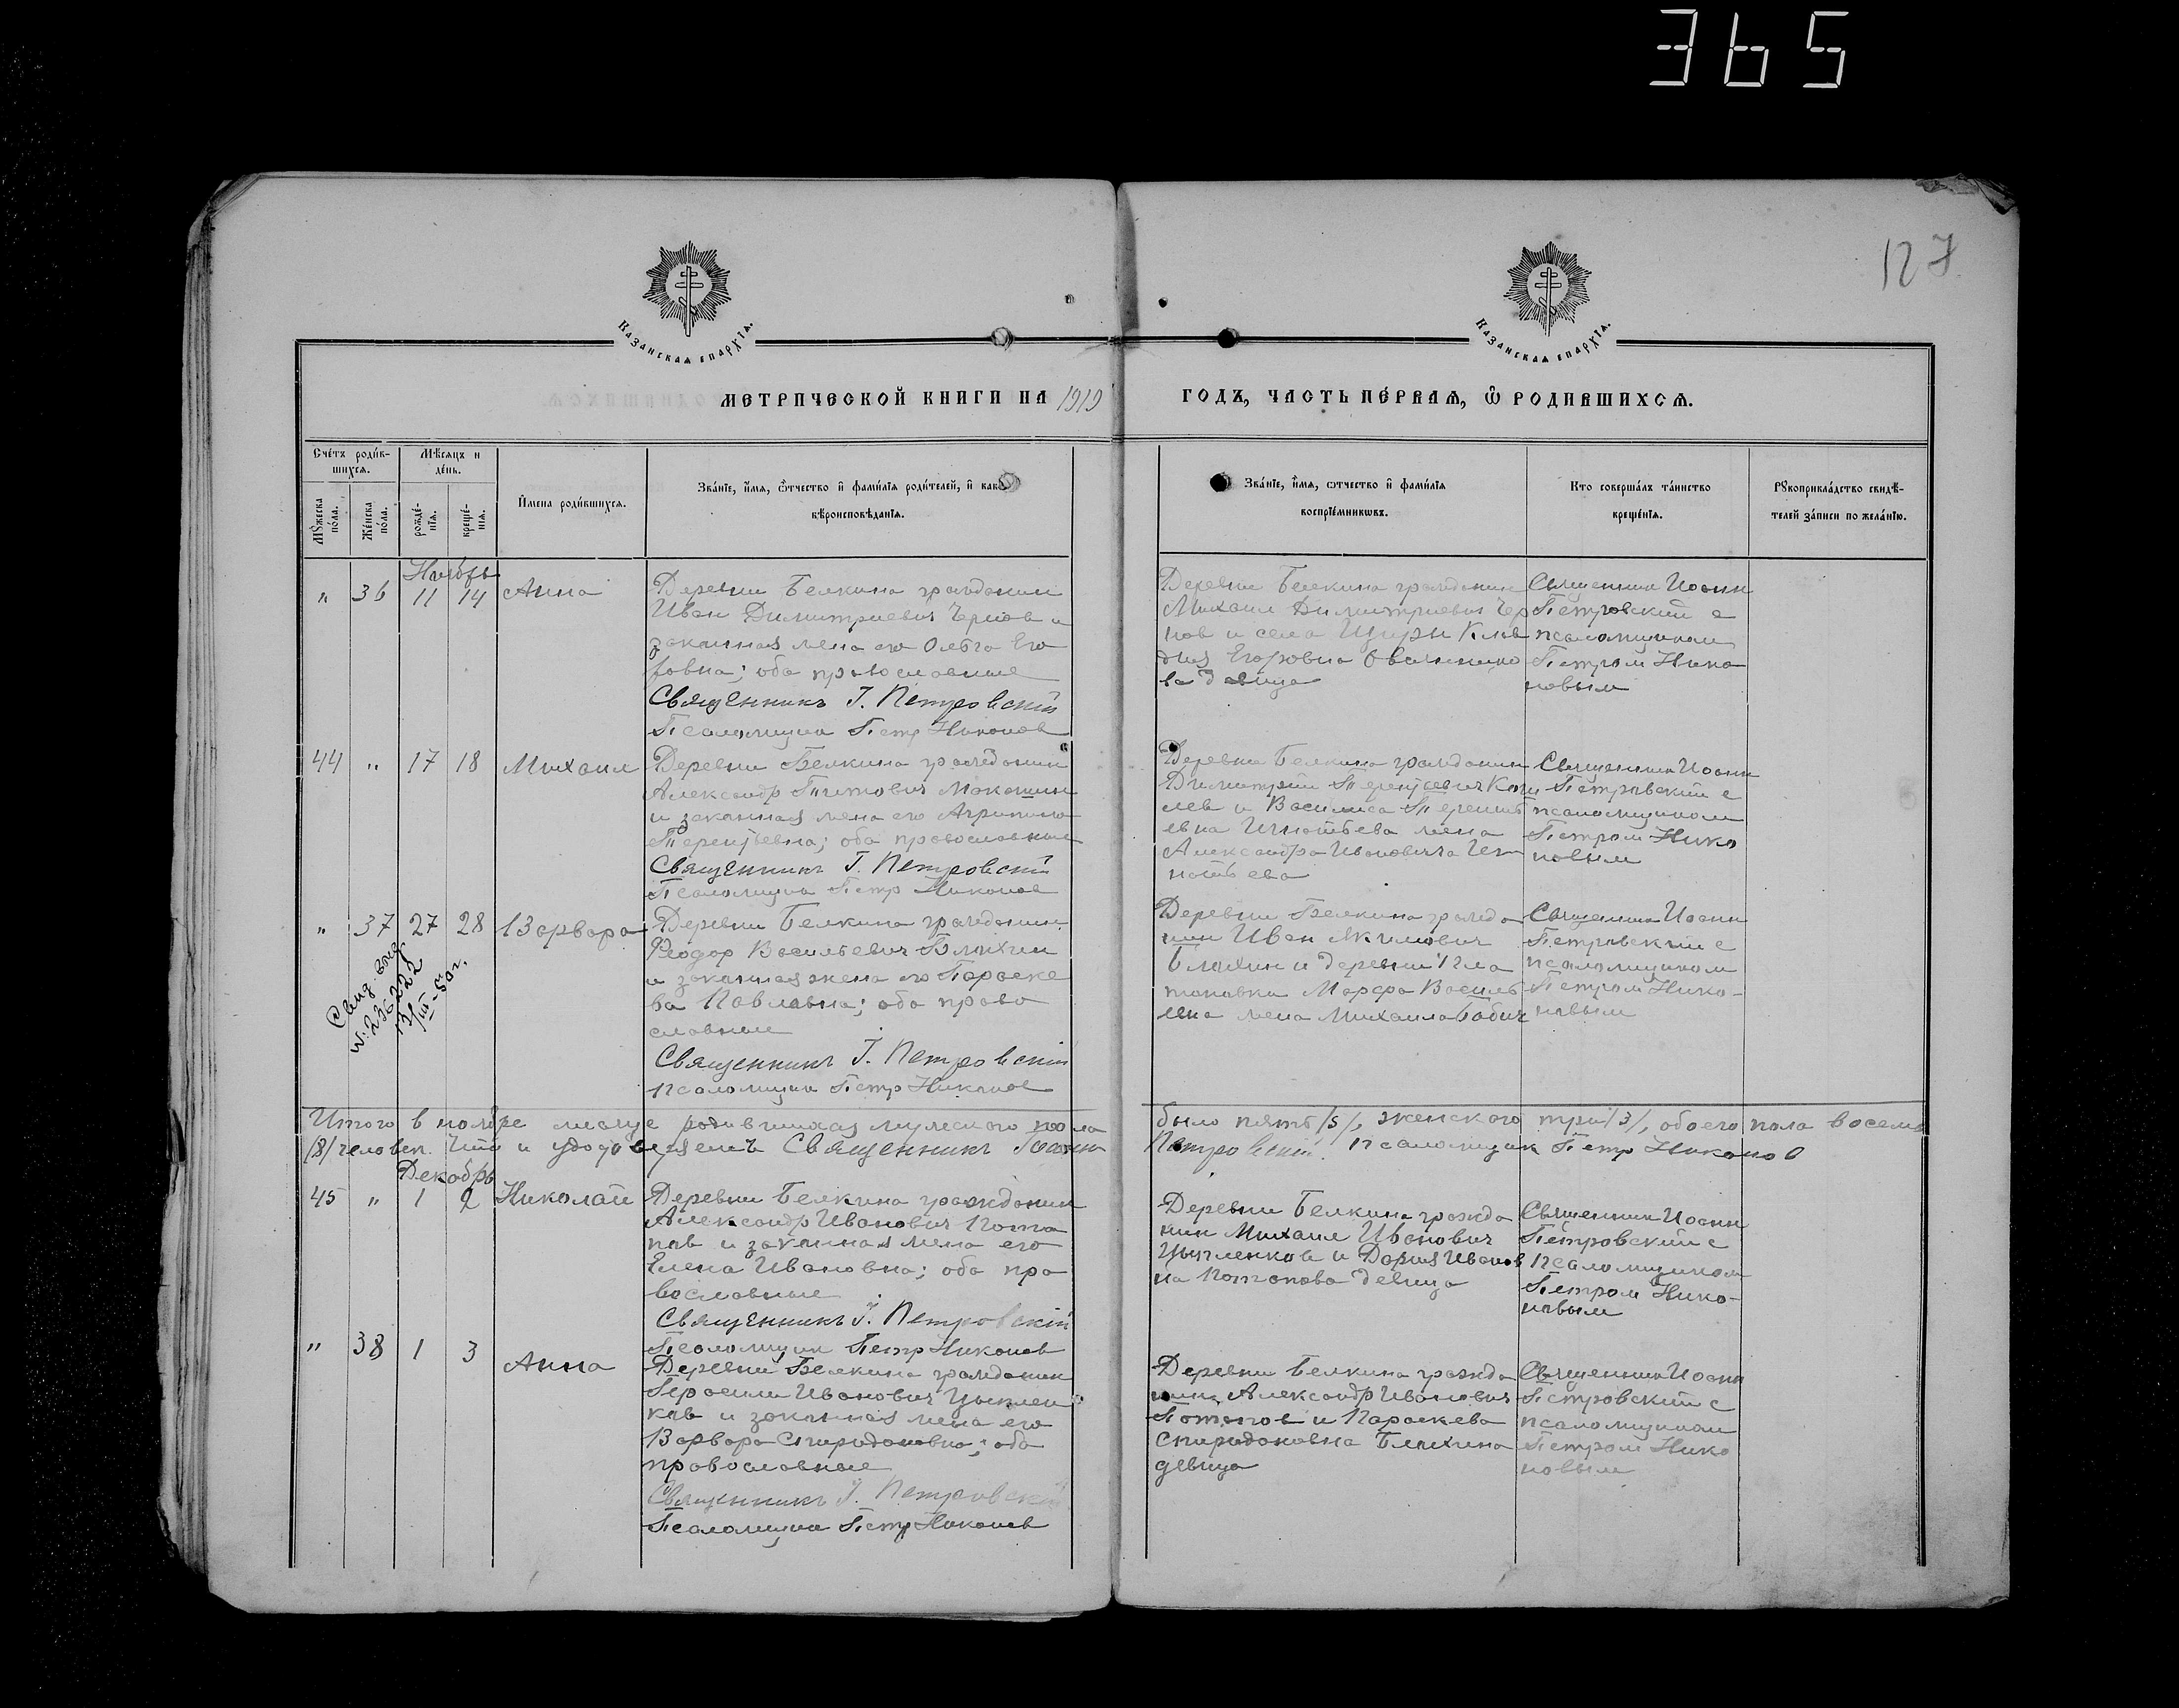 365
127
Казанская епархїя.
Казанская епархїя.
Метрической книги на 1919
годъ, часть пе́рвая, ѡ родившихся.
Счéтъ роди́в-
шихся.
Мѣсяцъ и
де́нь.
Мꙋ́жеска
по́ла.
Же́нска
по́ла.
рожде́-
нїя.
креще́-
нїя.
И҆мена роди́вшихся.
Зва́нїе, и҆́мя, ѻ҆́тчество и҆ фами́лїя роди́телей, и҆ како
вѣроисповѣ́данїя.
Зва́нїе, и҆́мя, ѻтчество и҆ фами́лїя
воспрїе́мниковъ.
Кто соверша́лъ та́инство
креще́нїя.
Рꙋкоприкла́дство свидѣ́-
телей за́писи по жела́нїю.
Ноябрь
" 36 11 14 Анна
Деревни Белкина гражданин
Иван Димитриевич Чернов и
законная жена его Ольга Его
ровна; оба православные
Священникъ І. Петровскій
Псаломщик Петр Никонов
Деревни Белкина гражданин
Михаил Димитриевич Чер
нов и села Клав
дия Егоровна Овчиннико
ва девица
Священник Иоанн
Петровский с
псаломщиком
Петром Нико
новым
44 " 17 18 Михаил
Деревни Белкина гражданин
Александр Титович Мокшин
и законная жена его Агрипина
Терентьевна; оба православные
Священникъ І. Петровскій
Псаломщик Петр Никонов
Деревни Белкина гражданин
Димитрий Терентьевич
лев и Василиса Терентьевна
Игнатьева жена
Александра Ивановича Иг
натьева
Священник Иоанн
Петровский с
псаломщиком
Петром Нико
новым
" 37 27 28 Варвара
Свид. выд.
№ 236222
13/III-50г.
Деревни Белкина гражданин
Феодор Васильевич Блихин
и законная жена его Параске
ва Павловна; оба право
славные
Священникъ І. Петровскій
псаломщик Петр Никонов
Деревни Белкина гражда
нин Иван Якимович
Блихин и деревни Пла
тоновки Марфа Василь
евна жена Михаила
Священник Иоанн
Петровский с
псаломщиком
Петром Нико-
новым
Итого в ноябре месяце родившихся мужеского пола
было пять /5/, женского три /3/, обоего пола восемь
/8/ человек. Что и удостоверяемъ Священникъ Іоаннъ
Петровскій. псаломщик Петр Никонов
Декабрь
45 " 1 2 Николай
Деревни Белкина гражданин
Александр Иванович Пота
пов и законная жена его
Елена Ивановна; оба пра
вославные
Священникъ І. Петровскій
Псаломщик Петр Никонов
Деревни Белкина гражда
нин Михаил Иванович
Цыпленков и Дария Иванов
на Потапова девица
Священник Иоанн
Петровский с
псаломщиком
Петром Нико-
новым
" 38 1 3 Анна
Деревни Белкина гражданин
Герасим Иванович Цыплен
ков и законная жена его
Варвара Спиридоновна; оба
православные
Священникъ І. Петровскій
Псаломщик Петр Никонов
Деревни Белкина гражда
нин Александр Иванович
Потапов и Параскева
Спиридоновна Блихина
девица
Священник Иоанн
Петровский с
псаломщиком
Петром Нико
новым